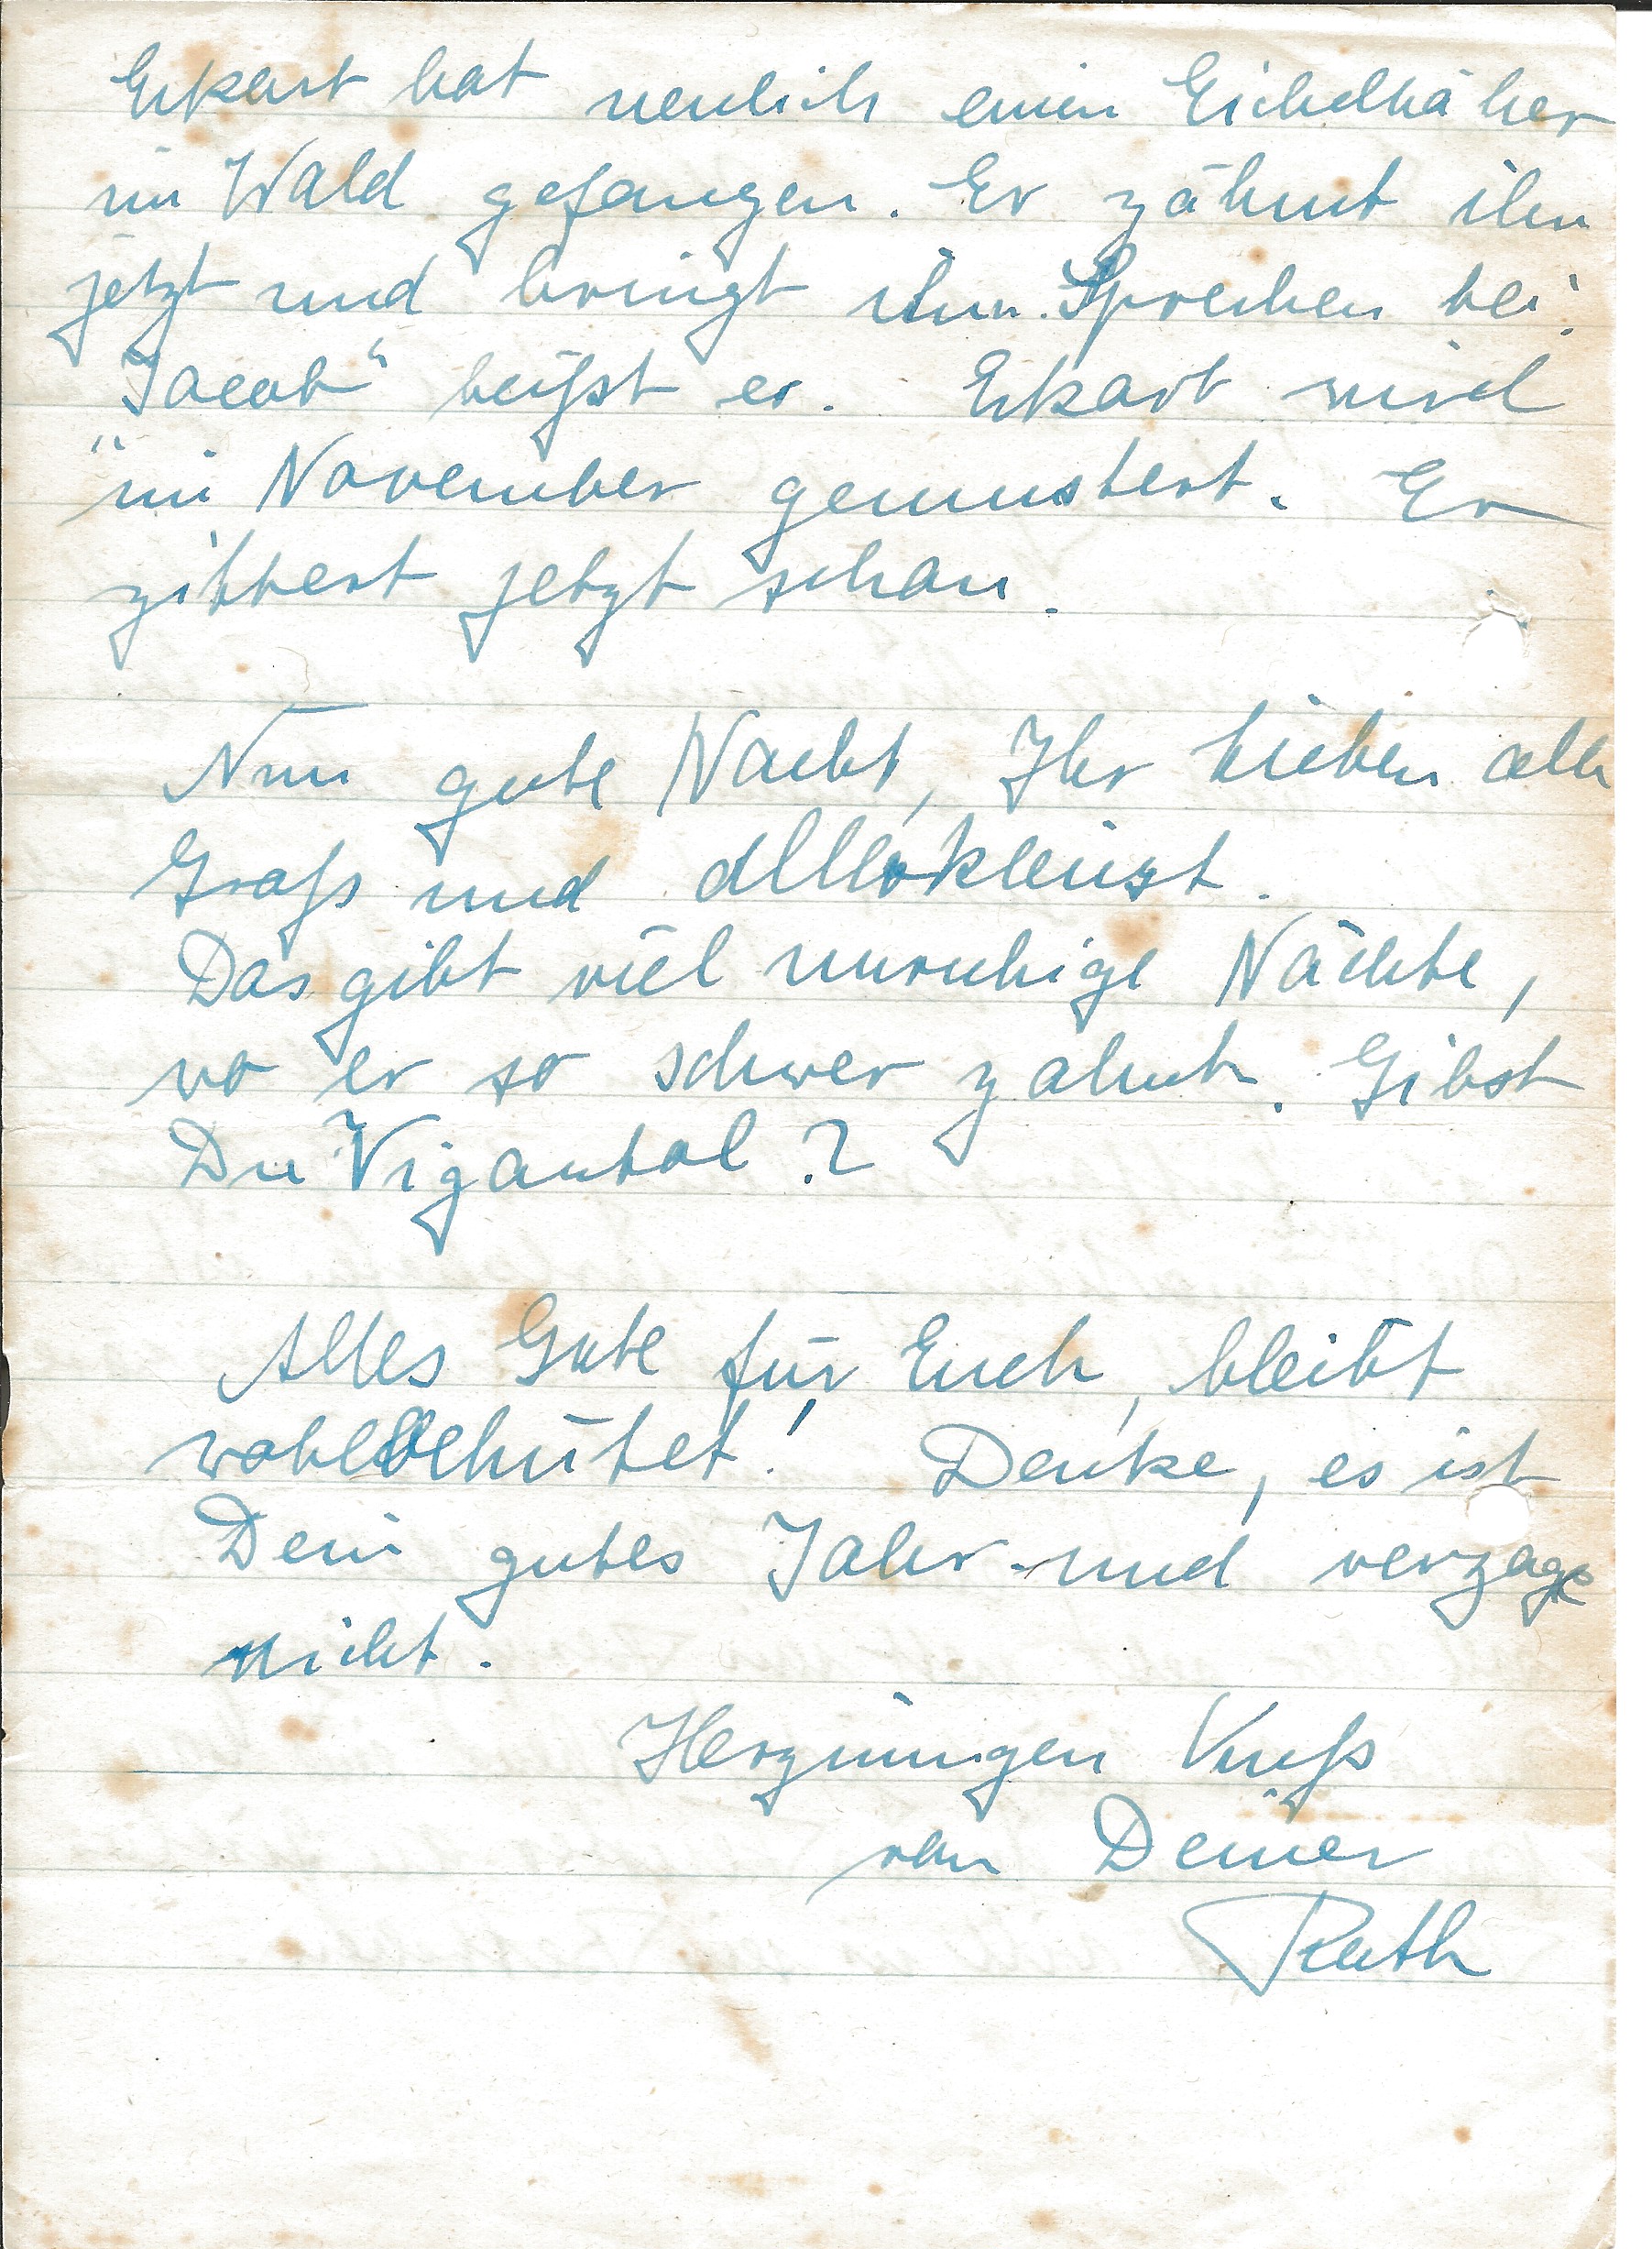 Erkart hat neulich einen Eichelhäher
im Wald gefangen. Er zähmt ihn
jetzt und bringt ihm Sprechen bei.
"Jacob" heißt er. Erkart wird
im November gemustert. Er
zittert jetzt schon.
Nun gute Nacht, Ihr Lieben alle
Groß und allerkleinst.
Das gibt viel unruhige Nächte,
wo er so schwer zahnt. Gibst
Du Vigantol?
Alles Gute für Euch, bleibt
wohlbehütet! Denke, es ist
Dein gutes Jahr und verzage
nicht.
Herzinnigen Kuß
von Deiner
Ruth